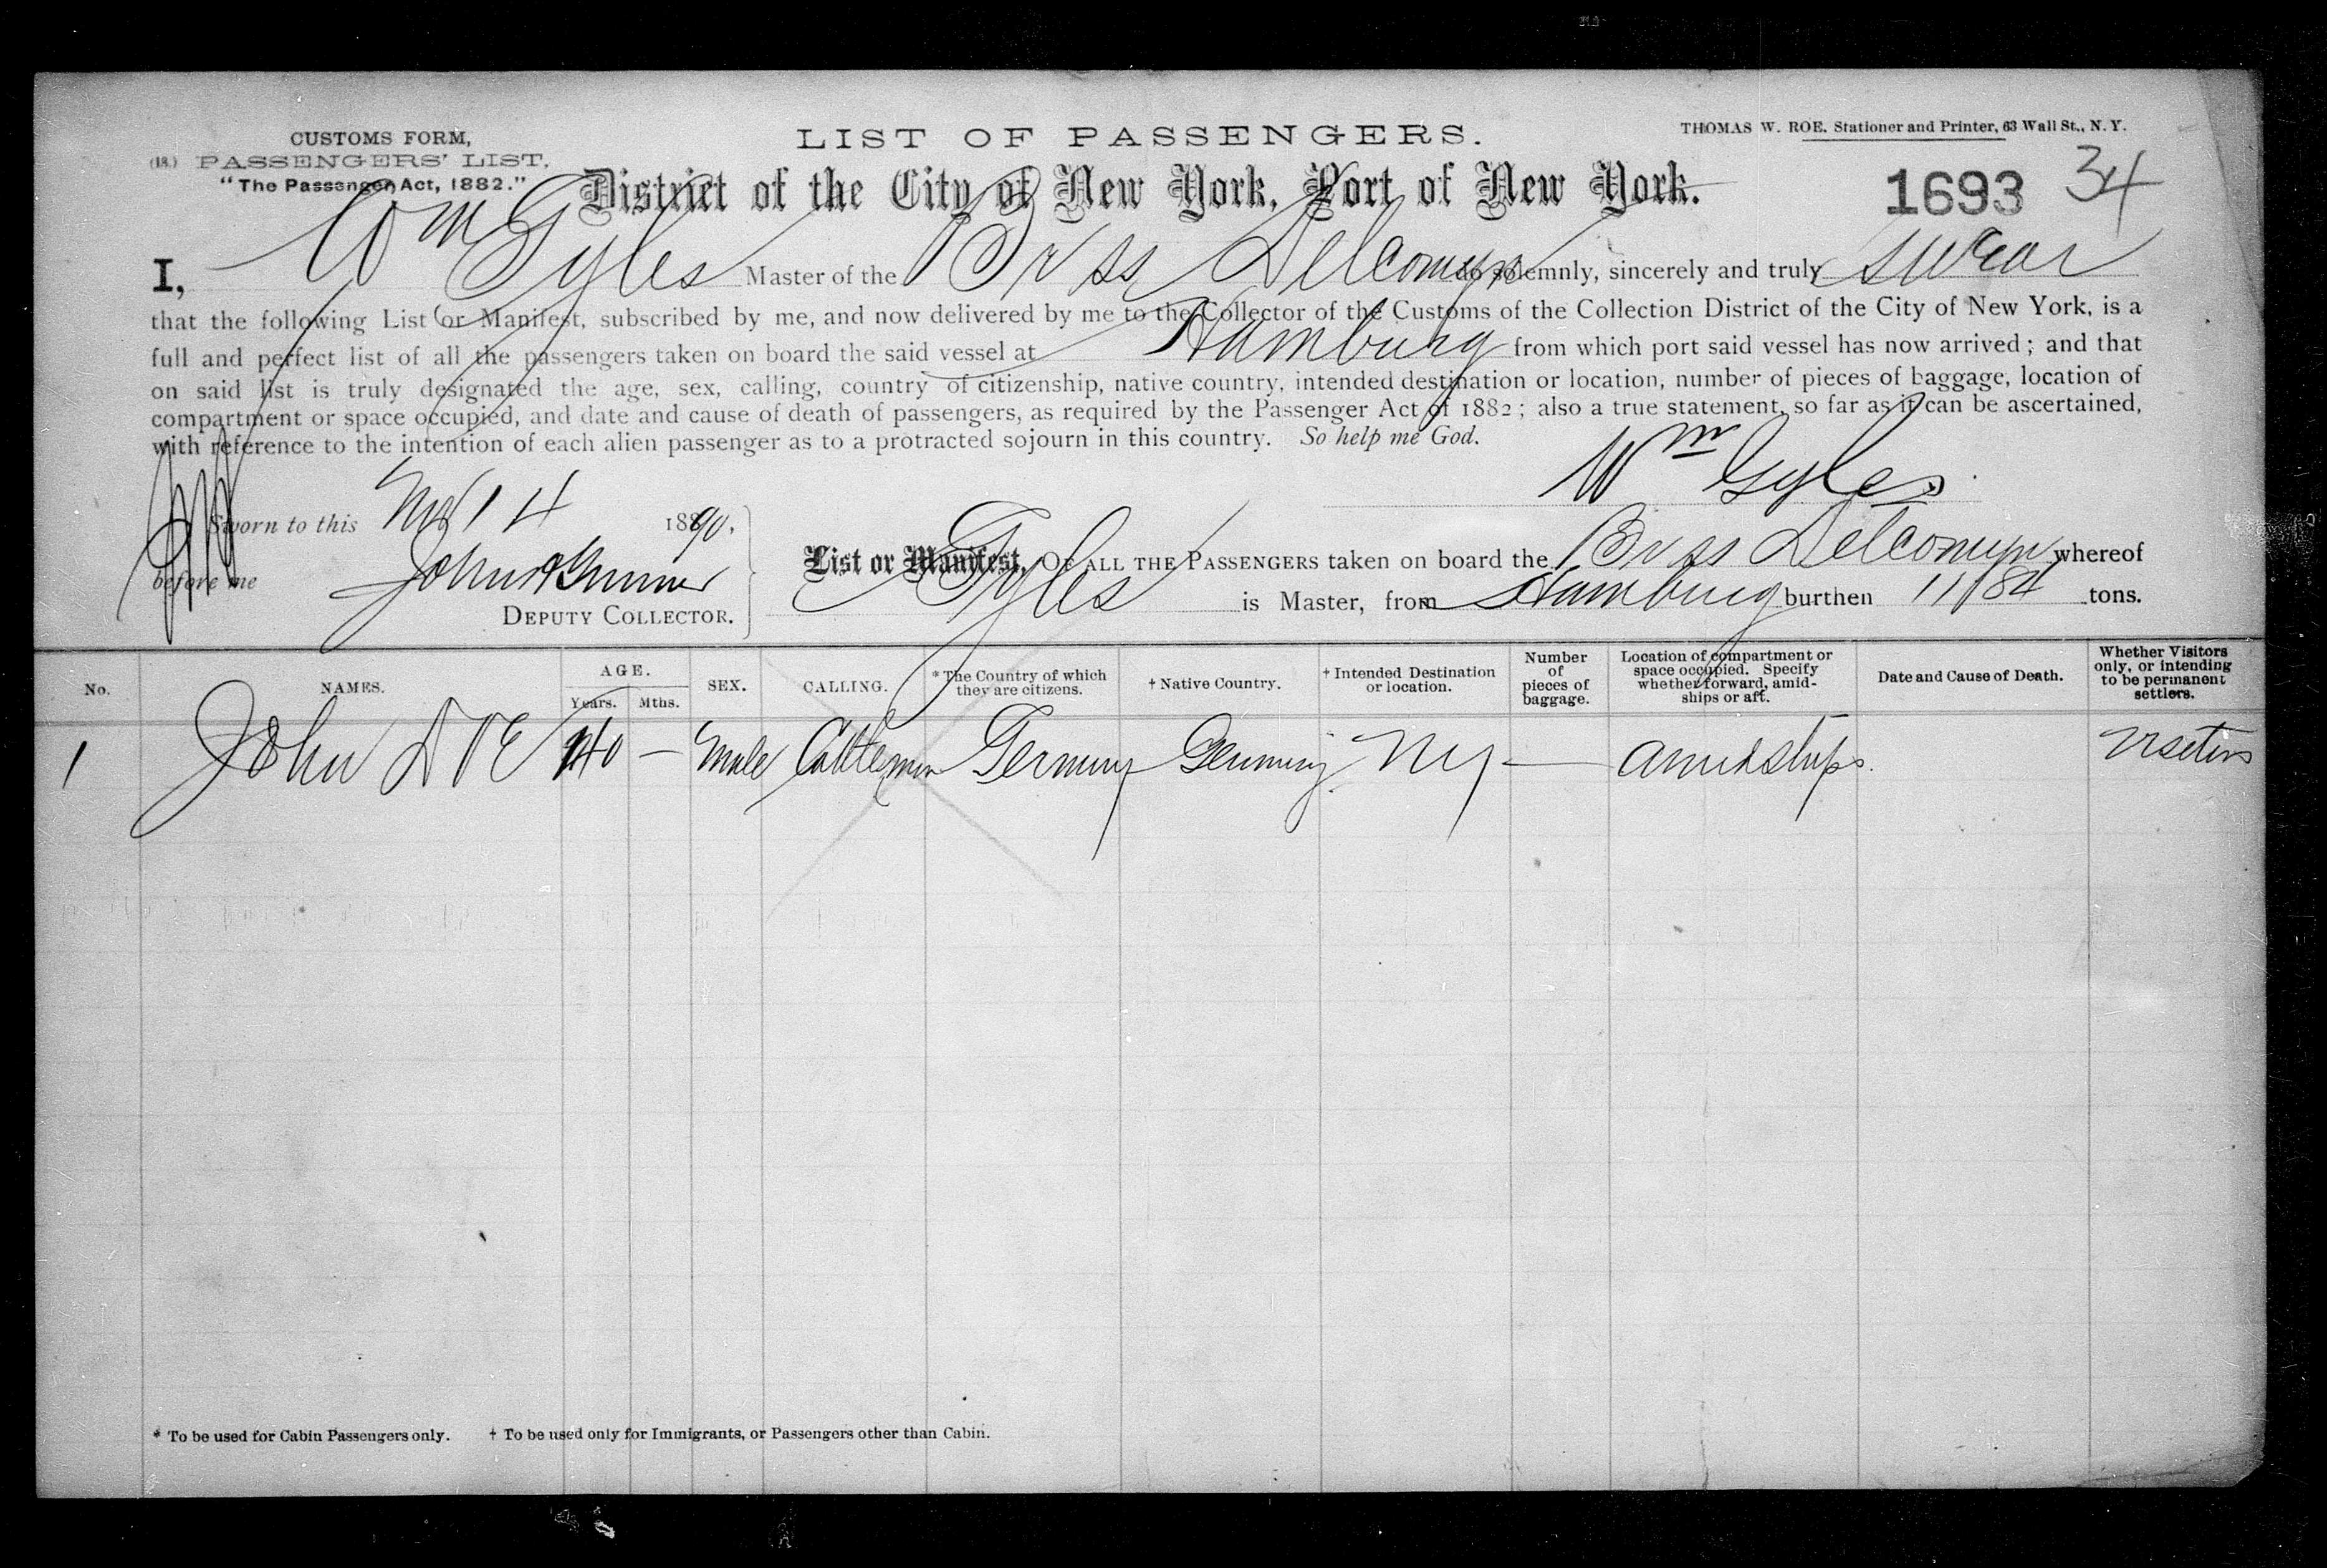 CUSTOMS FORM,
(18.) PASSENGERS' LIST.
"The Passenger Act, 1882."
LIST OF PASSENGERS.
THOMAS W. ROE, Stationer and Printer, 63 Wall St., N. Y.
District of the City of New York, Port of New York.
1693 34
I, Wm Gyles Master of the Br ss Delcomyn do solemnly, sincerely and truly swear
that the following List or Manifest, subscribed by me, and now delivered by me to the Collector of the Customs of the Collection District of the City of New York, is a
full and perfect list of all the passengers taken on board the said vessel at Hamburg from which port said vessel has now arrived; and that
on said list is truly designated the age, sex, calling, country of citizenship, native country, intended destination or location, number of pieces of baggage, location of
compartment or space occupied, and date and cause of death of passengers, as required by the Passenger Act of 1882; also a true statement, so far as it can be ascertained,
with reference to the intention of each alien passenger as to a protracted sojourn in this country. So help me God.
Wm Gyles
Sworn to this Nov 14 1890,
before me John
DEPUTY COLLECTOR.
List or Manifest, OF ALL THE PASSENGERS taken on board the Br ss Delcomyn whereof
Gyles is Master, from Hamburg burthen 1184 tons.
No.
NAMES.
AGE.
Years.
Mths.
SEX.
CALLING.
* The Country of which
they are citizens.
† Native Country.
† Intended Destination
or location.
Number
of
pieces of
baggage.
Location of compartment or
space occupied. Specify
whether forward, amid-
ships or aft.
Date and Cause of Death.
Whether Visitors
only, or intending
to be permanent
settlers.
1 John Doe 40 — Male Cattleman Germany Germany NY — amidships. Visitors
* To be used for Cabin Passengers only. † To be used only for Immigrants, or Passengers other than Cabin.